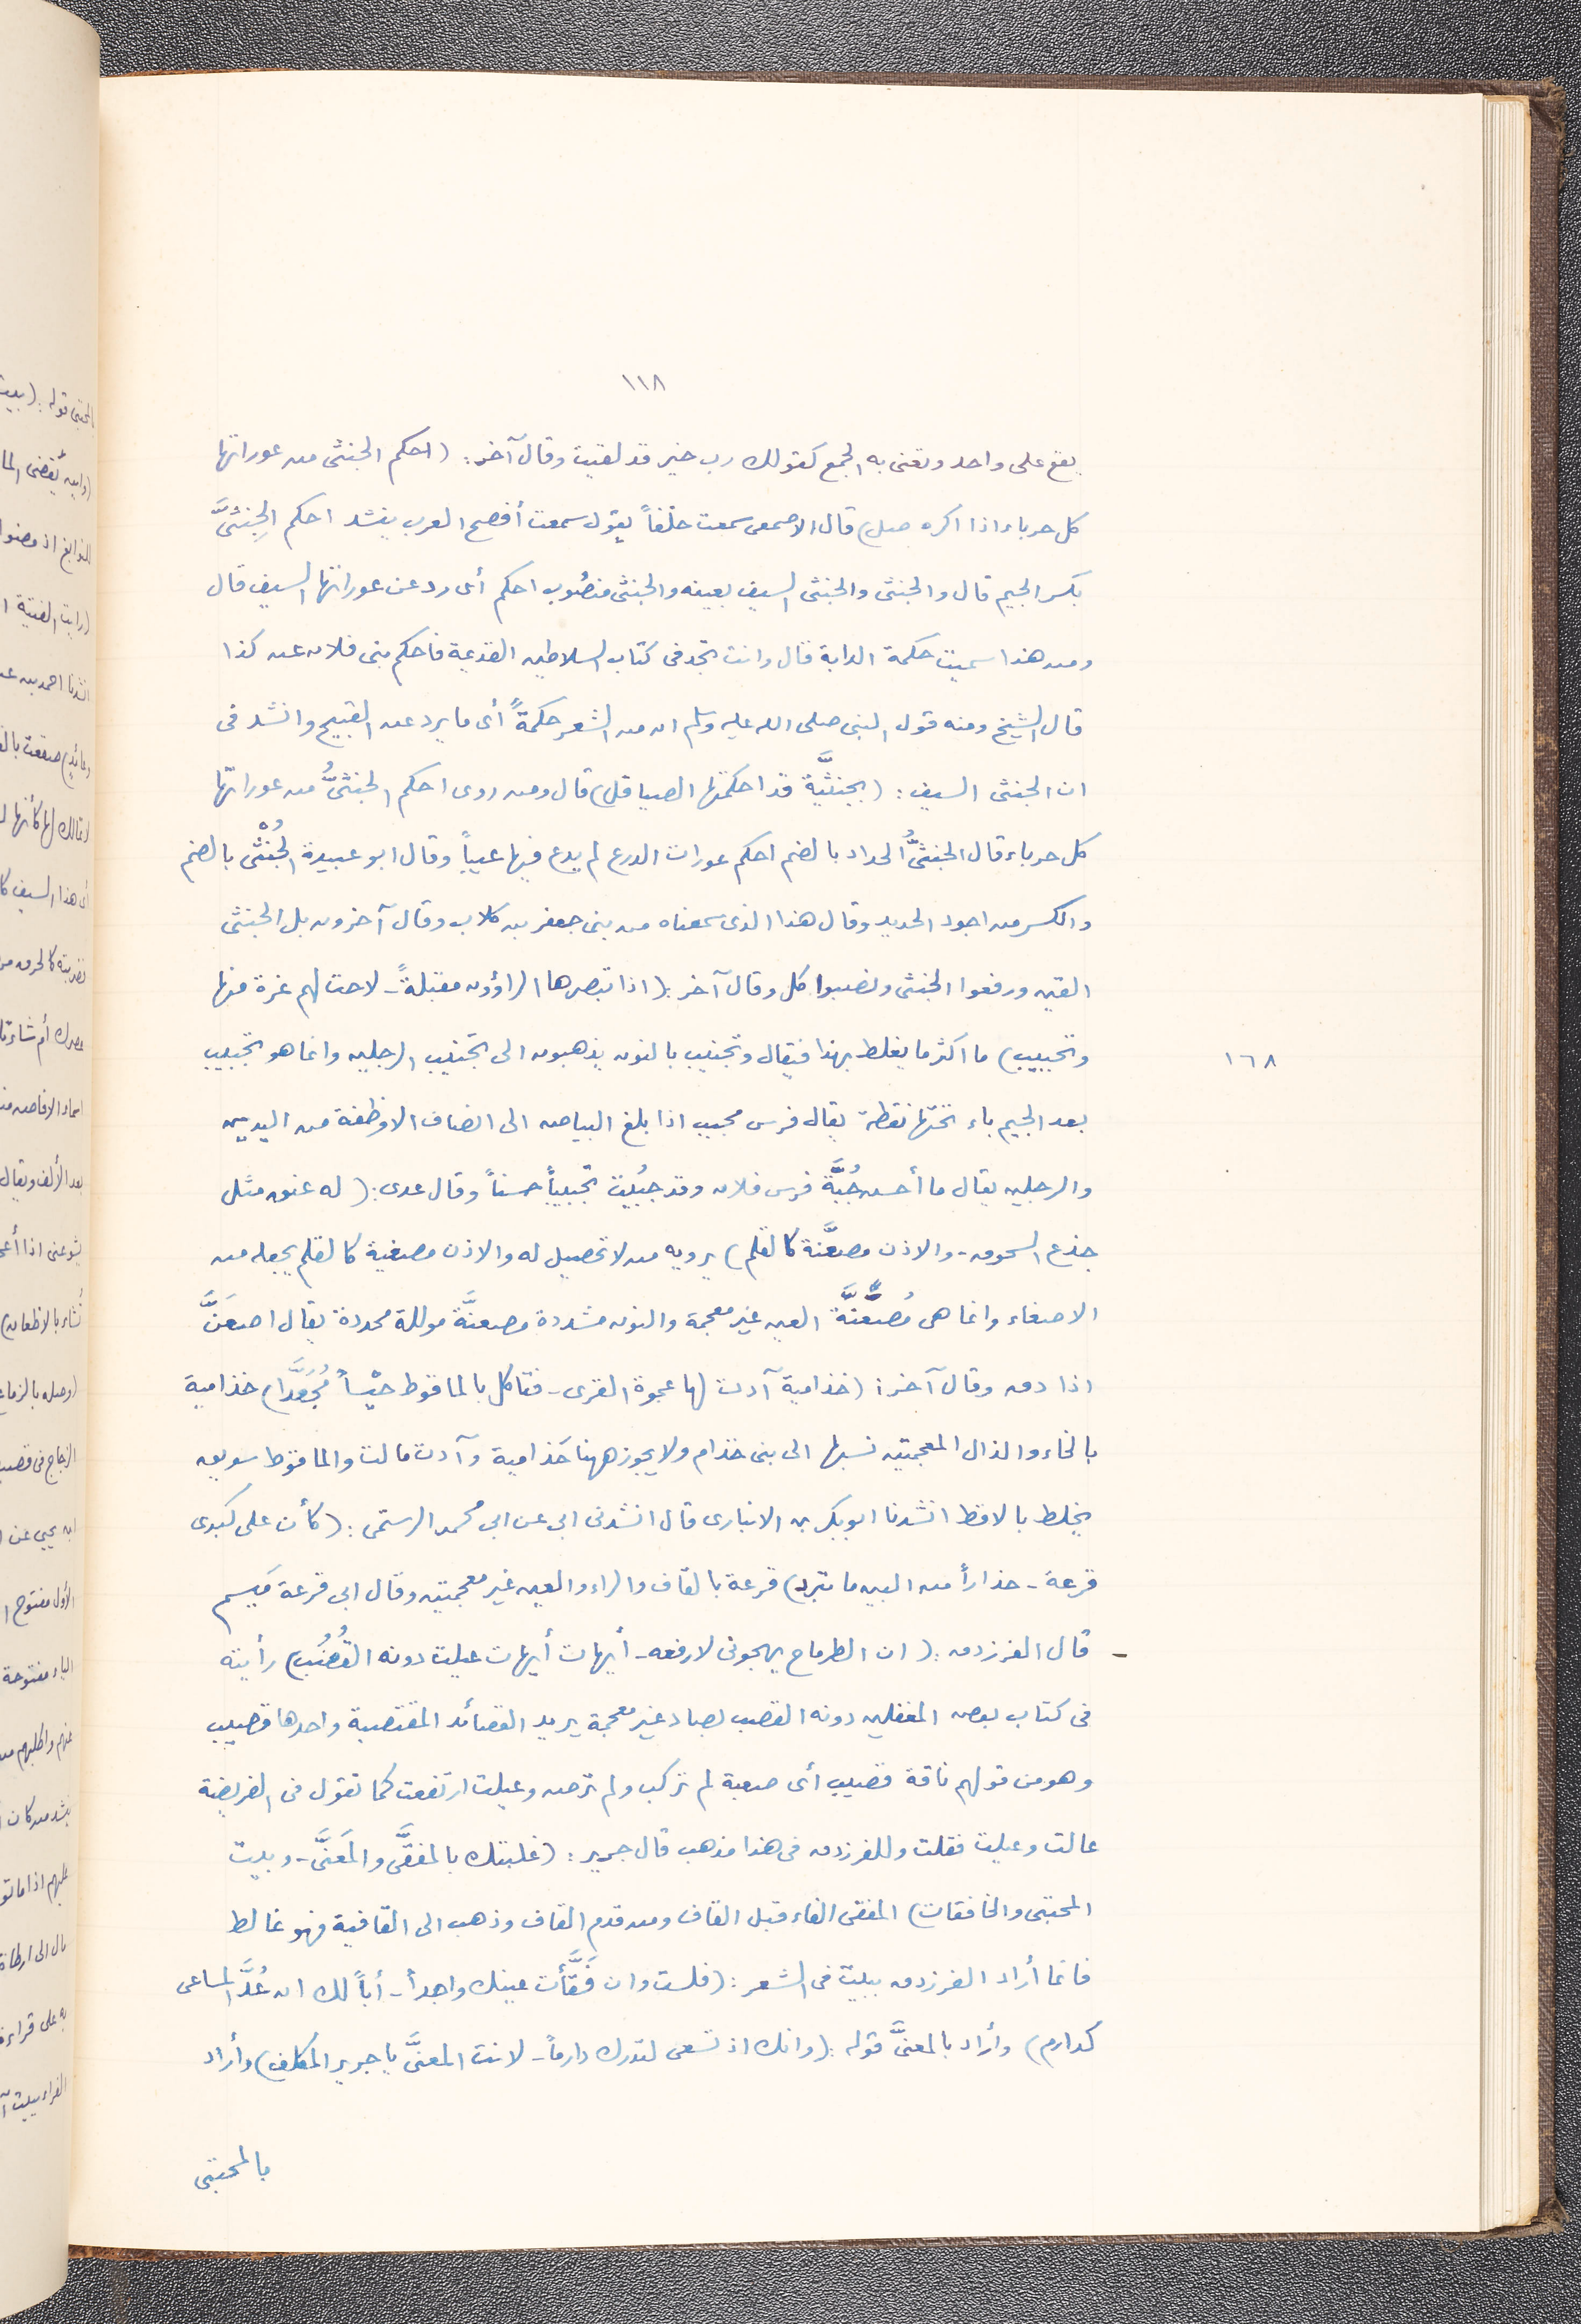 ١١٨
يقع على واحد وتعنى به الجمع كقولك رب خير قد لقيت وقال آخر : (احكم الجنثى من عوراتها
كل حرباء اذا اكره صل) قال الاصمعى سمعت خلفاً يقول سمعت أفصح العرب ينشد احكم الجِنثىَّ
بكسر الجيم قال والجنثى والجنثى السيف بعينه والجنثى منصوب احكم أى رد عن عوراتها السيف قال
ومن هذا سميت حكمة الدابة قال وانت تجد فى كتاب السلاطين القديمة فاحكم بنى فلان عن كذا
قال الشيخ ومنه قول النبى صلى الله عليه وسلم ان من الشعر حكمةً أى ما يرد عن القبيح وانشد فى
ان الجنثى السيف : (بجنثيَّة قد احكمتها الصياقل) قال ومن روى احكم الجنثىُّ من عوراتها
كل حرباء قال الجنثىُّ الحداد بالضم احكم عورات الدرع لم يدع فيها عيباً وقال ابو عبيدة الجُنْثى بالضم
والكسر من اجود الحديد وقال هذا الذى سمعناه من بنى جعفر بن كلاب وقال آخرون بل الجنثى
القين ورفعوا الجنثى ونصبوا كل وقال آخر : (اذا تبصرها الراؤون مقبلةً - لاحت لهم غرة منها
وتجبيب) ما اكثر ما يغلط بهذا فيقال وتجنيب بالنون يذهبون الى تجنيب الرجلين وانما هو تجبيب
١٦٨
بعد الجيم باء تحتها نقطة يقال فرس مجبب اذا بلغ البياض الى انصاف الاوظفة من اليدين
والرجلين يقال ما أحسن جُبَّة فرس فلان وقد جُبِّبت تجبيباً حسناً وقال عدى : (له عنق مثل
جذع السحوق - والاذن مصعَّنة كالقلم) يرويه من لا تحصيل له والاذن مصغية كالقلم يجعله من
الاصغاء وانما هى مُصعَنَّة العين غير معجمة والنون مشددة مصعنَّة موللة محددة يقال اصعَنَّ
اذا دق وقال آخر : (خذامية آدت لها عجوة القرى - فتاكل بالماقوط حيْساً مُجَعَّدا) خذامية
بالخاء والذال المعجمتين نسبها الى بنى خذام ولا يجوز ههنا حَذامية وآدت مالت والماقوط سويق
يخلط بالاقط انشدنا ابو بكر بن الانبارى قال انشدنى ابى عن ابى محمد الرستمى : (كأن على كبدى
قرعة - حذاراً من البين ما تبرد) قرعة بالقاف والراء والعين غير معجمتين وقال ابى قرعة مَيسم
قال الفرزدق : (ان الطرماح يهجونى لارفعه - أيهات أيهات عيلت دونه القُضُبُ) رأيته
فى كتاب بعض المغفلين دونه القصب بصاد غير معجمة يريد القصائد المقتضبة واحدها قضيب
وهو من قولهم ناقة قضيب أى صعبة لم تركب ولم ترض وعيلت ارتفعت كما تقول فى الفريضة
عالت وعيلت فقلت وللفرزدق فى هذا مذهب قال جرير : (غلبتك بالمفقَّى والمَعَنَّى - وبيت
المحتبى والخافقات) المفقى الفاء قبل القاف ومن قدم القاف وذهب الى القافية فهو غالط
فانما أراد الفرزدق ببيت فى الشعر : (فلست وان فَقَّأت عينك واجداً - أباً لك ان عُدَّ المساعى
كدارم) وأراد بالمعنَّى قوله : (وانك اذ تسعى لتدرك دارماً - لانت المعنَّى يا جرير المكلف) وأراد
بالمحتبى